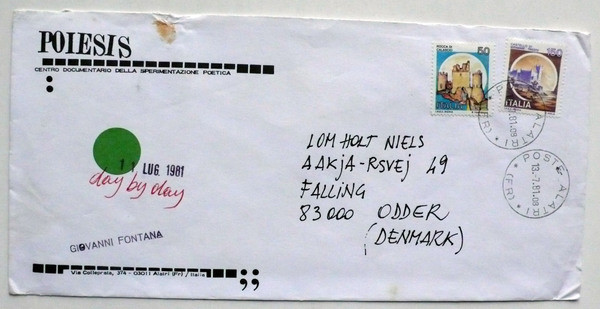 POIESIS
CENTRO DOCUMENTARIO DELLA SPERIMENTAZIONE POETICA
ROCCA DI CALASCIO
50
ITALIA
150
ITALIA
POSTE ALATRI
(FR)
POSTE ALATRI
13.-7.81.08
(FR)
11 LUG 1981
day by day
GIOVANNI FONTANA
LOM HOLT NIELS
AAKJA-RSVEJ 49
FALLING
83000 ODDER
(DENMARK)
Via Colleprata, 374 - 03011 Alatri (Fr) / Italia